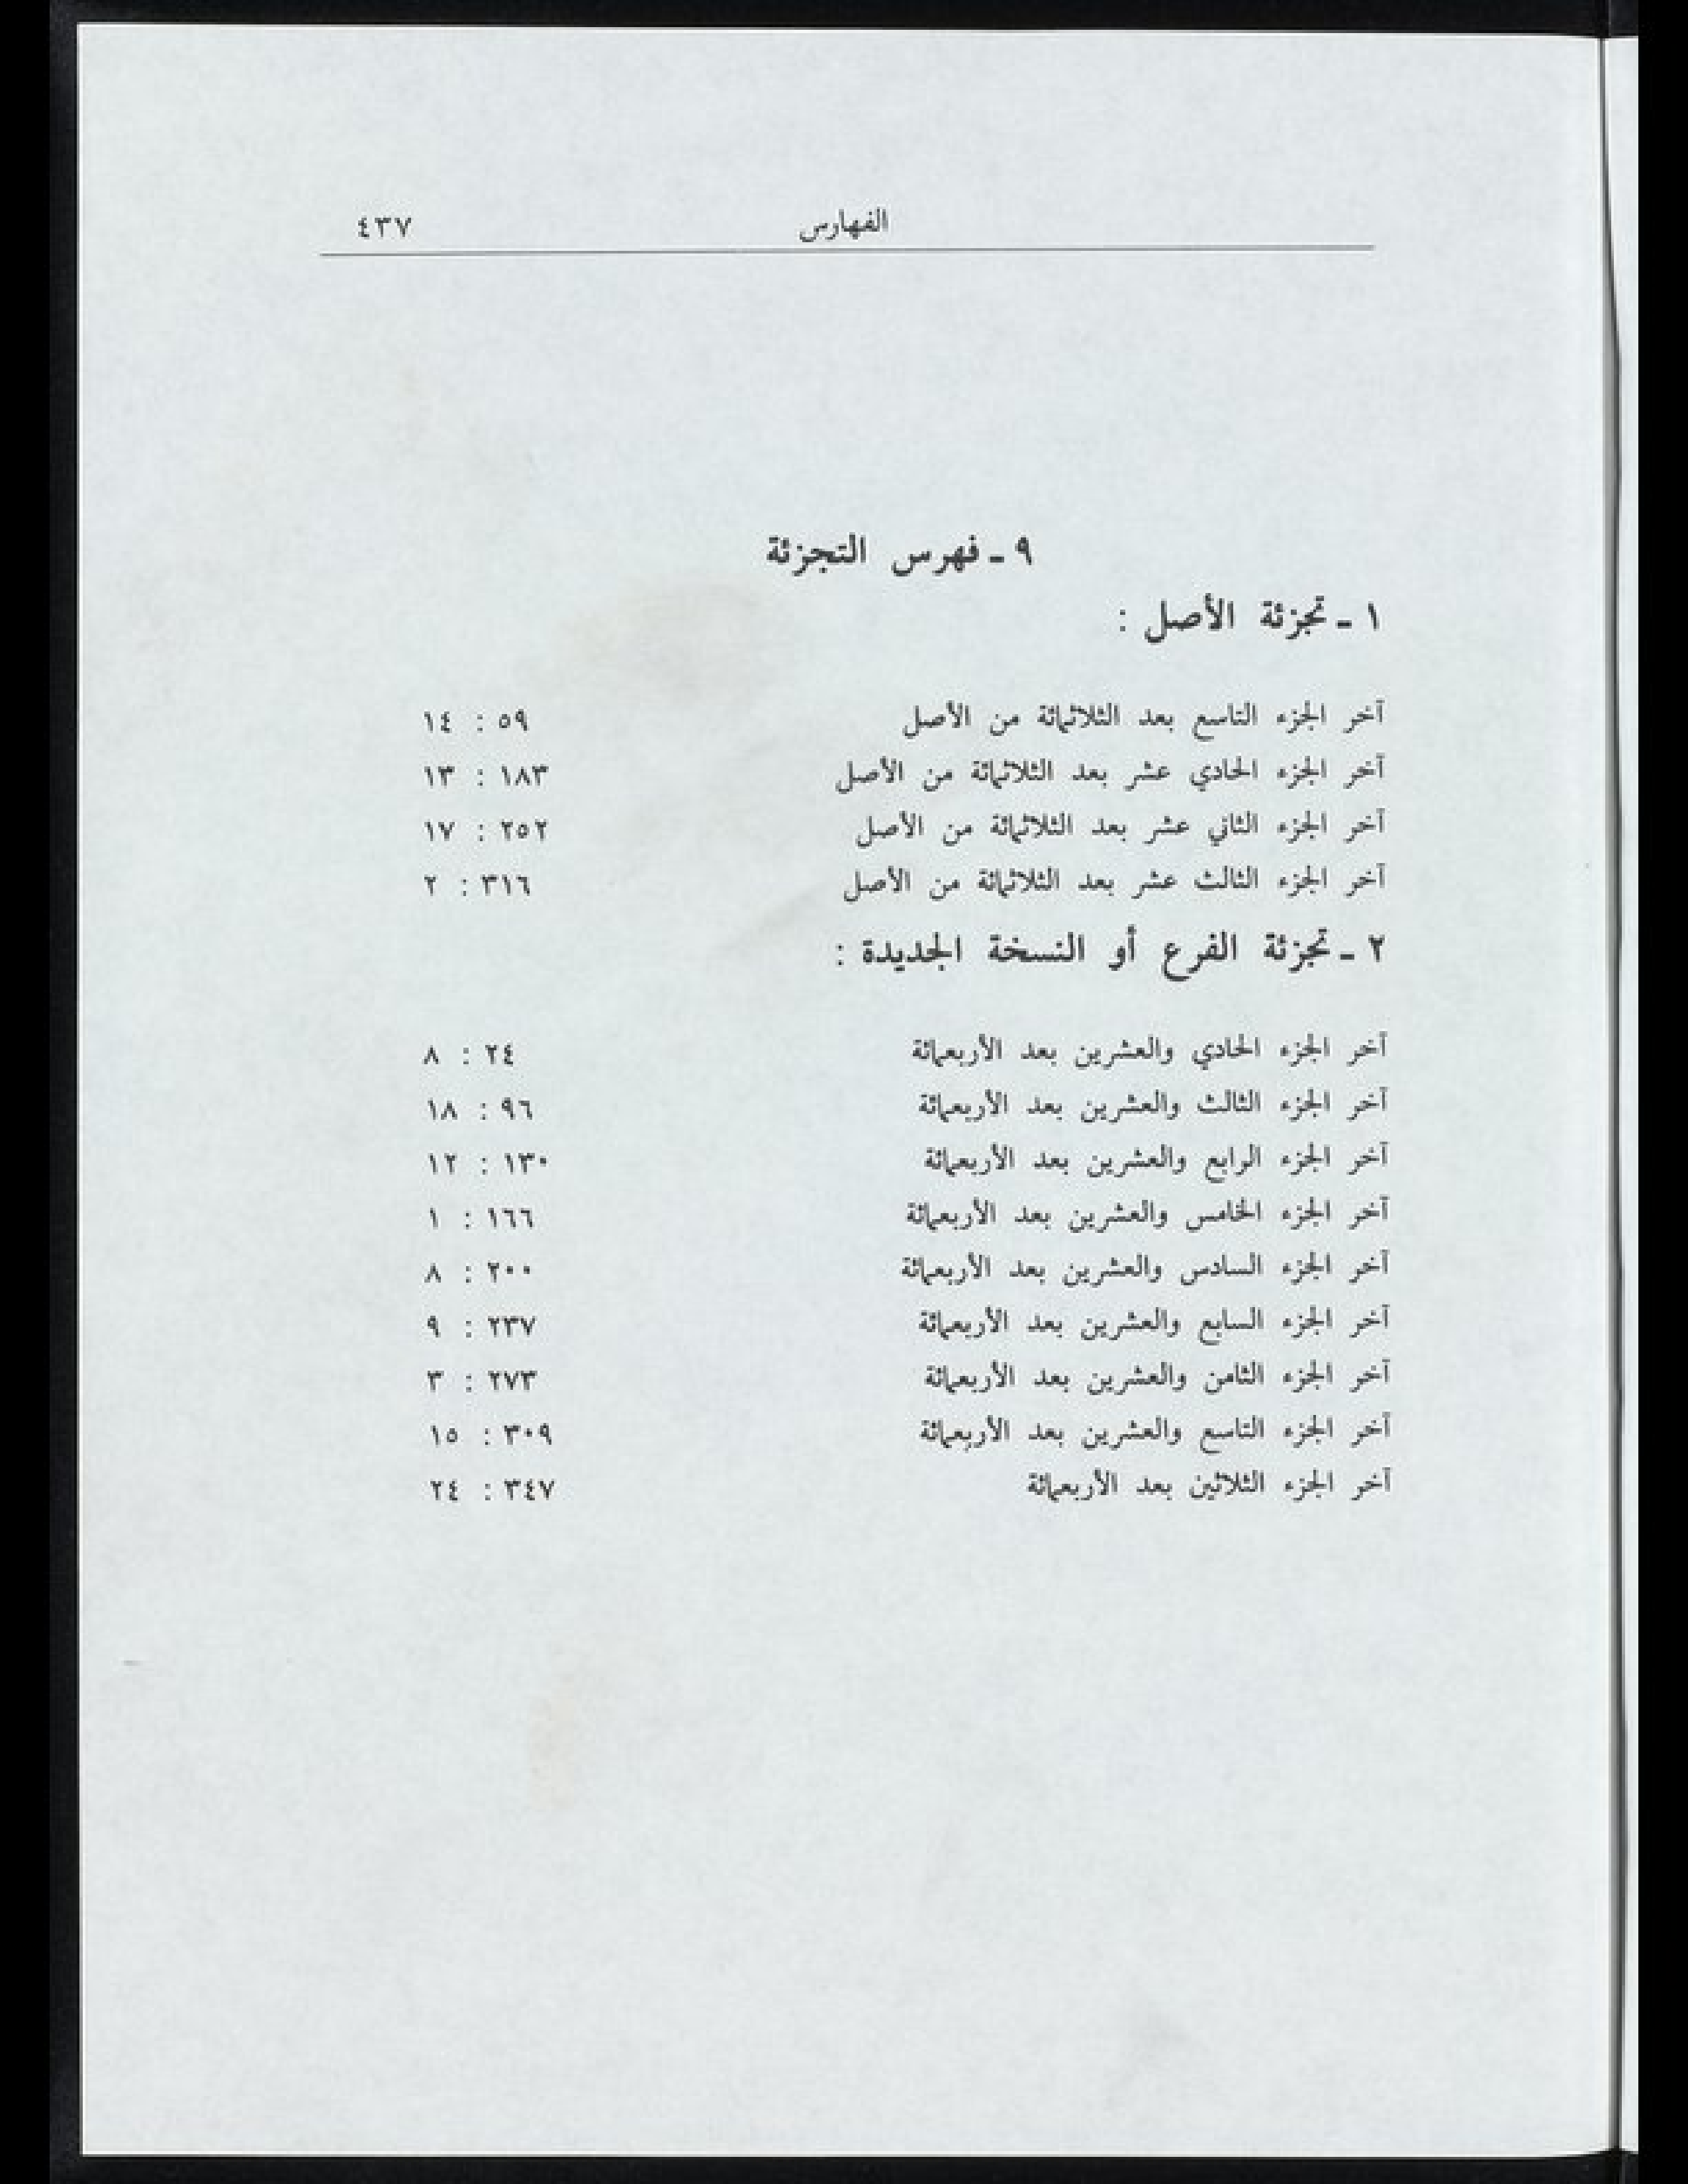 الفهارس ٤٣٧
٩ ـ فهرس التجزئة
١ ـ تجزئة الأصل :
آخر الجزء التاسع بعد الثلاثمائة من الأصل ٥٩ : ١٤
آخر الجزء الحادي عشر بعد الثلاثمائة من الأصل ١٨٣ : ١٣
آخر الجزء الثاني عشر بعد الثلاثمائة من الأصل ٢٥٢ : ١٧
آخر الجزء الثالث عشر بعد الثلاثمائة من الأصل ٣١٦ : ٢
٢ ـ تجزئة الفرع أو النسخة الجديدة :
آخر الجزء الحادي والعشرين بعد الأربعمائة ٢٤ : ٨
آخر الجزء الثالث والعشرين بعد الأربعمائة ٩٦ : ١٨
آخر الجزء الرابع والعشرين بعد الأربعمائة ١٣٠ : ١٢
آخر الجزء الخامس والعشرين بعد الأربعمائة ١٦٦ : ١
آخر الجزء السادس والعشرين بعد الأربعمائة ٢٠٠ : ٨
آخر الجزء السابع والعشرين بعد الأربعمائة ٢٣٧ : ٩
آخر الجزء الثامن والعشرين بعد الأربعمائة ٢٧٣ : ٣
آخر الجزء التاسع والعشرين بعد الأربعمائة ٣٠٩ : ١٥
آخر الجزء الثلاثين بعد الأربعمائة ٣٤٧ : ٢٤